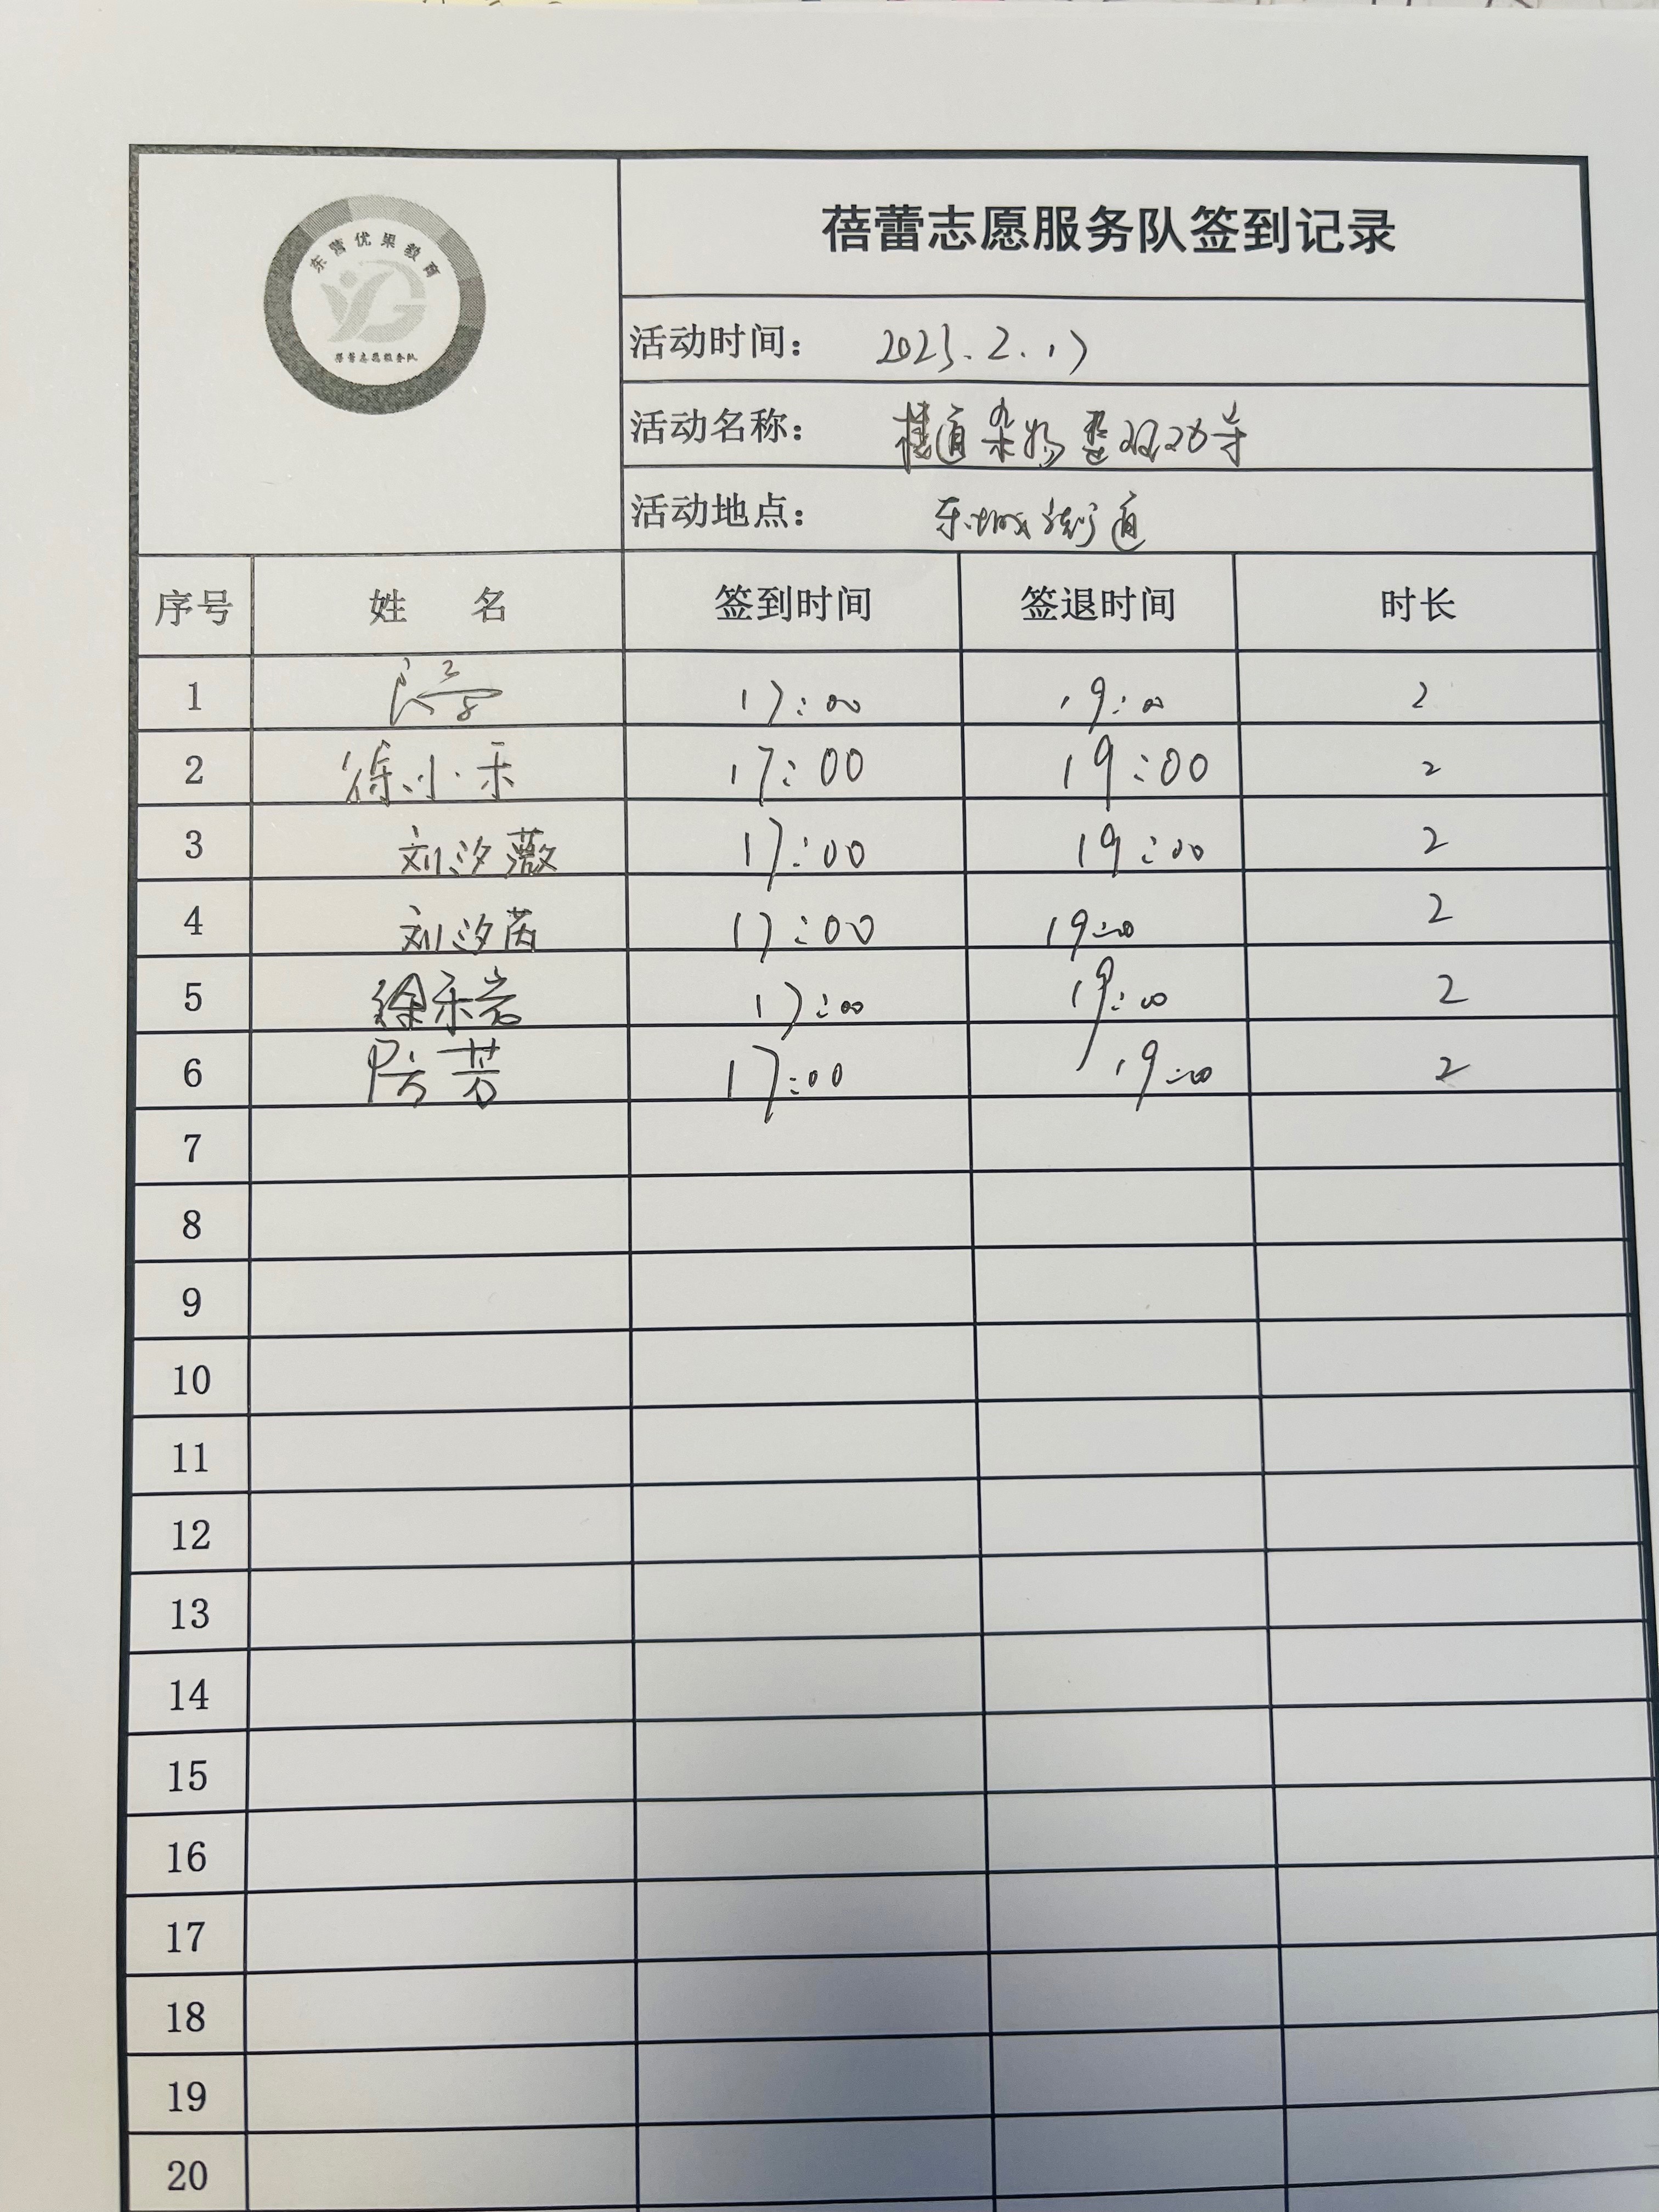 东营优果教育
蓓蕾志愿服务队
蓓蕾志愿服务队签到记录
活动时间： 2025.2.17
活动名称： 楼道杂物整理劝导
活动地点： 东城街道
序号 姓 名 签到时间 签退时间 时长
1 17:00 19:00 2
2 徐小禾 17:00 19:00 2
3 刘汐薇 17:00 19:00 2
4 刘汐芮 17:00 19:00 2
5 徐禾岩 17:00 19:00 2
6 芳 17:00 19:00 2
7
8
9
10
11
12
13
14
15
16
17
18
19
20